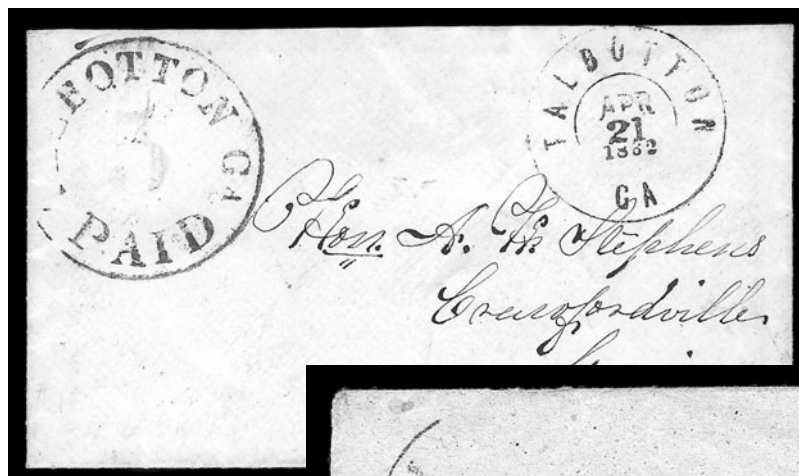 BOTTON GA
5
PAID
TALBOTTON
APR
21
1862
GA
Hon. A. H. Stephens
Crawfordville